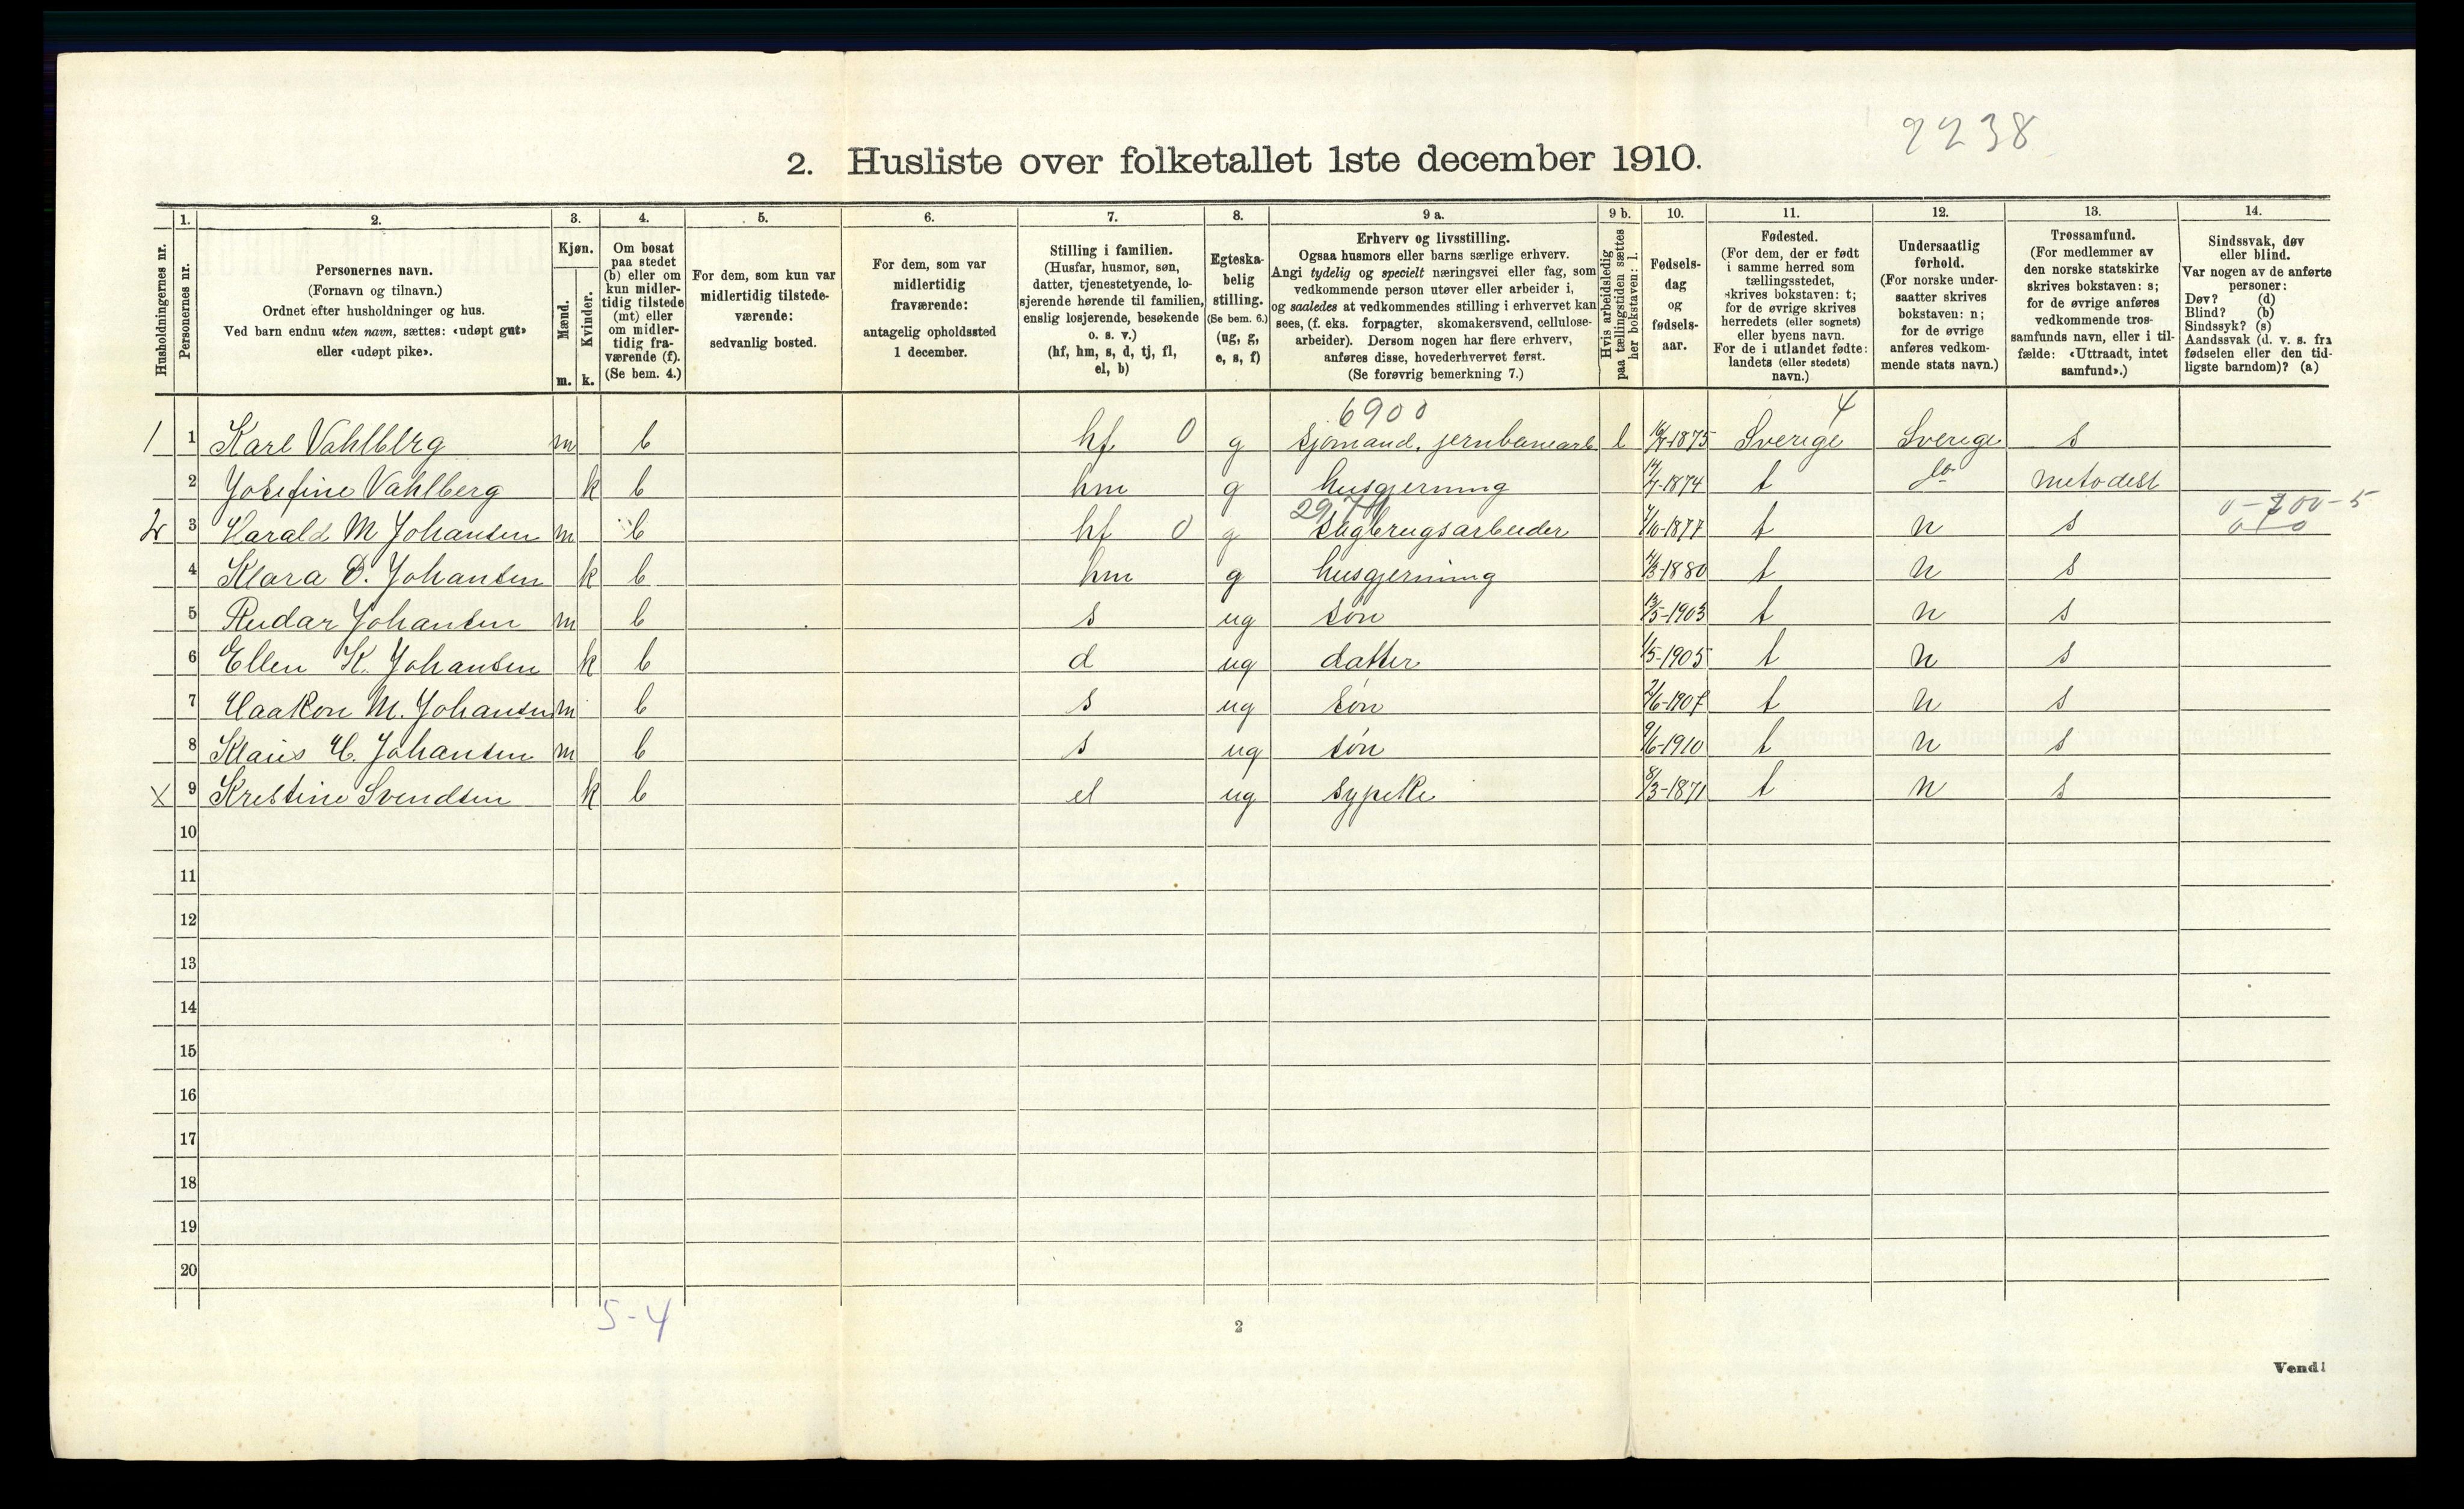 2238
2. Husliste over folketallet 1ste december 1910.
Husholdningernes nr.
1.
Personernes nr.
2.
Personernes navn.
(Fornavn og tilnavn.)
Ordnet efter husholdninger og hus.
Ved barn endnu uten navn, sættes: «udøpt gut»
eller «udøpt pike».
3.
Kjøn.
Mænd.
Kvinder.
m. k.
4.
Om bosat
paa stedet
(b) eller om
kun midler-
tidig tilstede
(mt) eller
om midler-
tidig fra-
værende (f).
(Se bem. 4.)
5.
For dem, som kun var
midlertidig tilstede-
værende:
sedvanlig bosted.
6.
For dem, som var
midlertidig
fraværende:
antagelig opholdssted
1 december.
7.
Stilling i familien.
(Husfar, husmor, søn,
datter, tjenestetyende, lo-
sjerende hørende til familien,
enslig losjerende, besøkende
o. s. v.)
(hf, hm, s, d, tj, fl,
el, b)
8.
Egteska-
belig
stilling.
(Se bem. 6.)
(ug, g,
e, s, f)
9 a.
Erhverv og livsstilling.
Ogsaa husmors eller barns særlige erhverv.
Angi tydelig og specielt næringsvei eller fag, som
vedkommende person utøver eller arbeider i,
og saaledes at vedkommendes stilling i erhvervet kan
sees, (f. eks. forpagter, skomakersvend, cellulose-
arbeider). Dersom nogen har flere erhverv,
anføres disse, hovederhvervet først.
(Se forøvrig bemerkning 7.)
9 b.
Hvis arbeidsledig
paa tællingstiden sættes
her bokstaven: l.
10.
Fødsels-
dag
og
fødsels-
aar.
11.
Fødested.
(For dem, der er født
i samme herred som
tællingsstedet,
skrives bokstaven: t;
for de øvrige skrives
herredets (eller sognets)
eller byens navn.
For de i utlandet fødte:
landets (eller stedets)
navn.)
12.
Undersaatlig
forhold.
(For norske under-
saatter skrives
bokstaven: n;
for de øvrige
anføres vedkom-
mende stats navn.)
13.
Trossamfund.
(For medlemmer av
den norske statskirke
skrives bokstaven: s;
for de øvrige anføres
vedkommende tros-
samfunds navn, eller i til-
fælde: «Uttraadt, intet
samfund».)
14.
Sindssvak, døv
eller blind.
Var nogen av de anførte
personer:
Døv? (d)
Blind? (b)
Sindssyk? (s)
Aandssvak (d. v. s. fra
fødselen eller den tid-
ligste barndom)? (a)
6900 4
1 1 Karl Vahlberg m b hf 0 g sjømand, jernbanearb l 1875 Sverige Sverige s
2 Josefine Vahlberg k b hm g husgjerning 1874 t do metodist
0-200-5
2 3 Harald M Johansen m b hf 0 g sagbrugsarbeider 7/10-1877 t n s 0-0
4 Klara D. Johansen k b hm g husgjerning 1880 t n s
5 Reidar Johansen m b s ug søn 13/5-1903 t n s
6 Ellen K. Johansen k b d ug datter 1/5-1905 t n s
7 Haakon M. Johansen m b s ug søn 2/6-1907 t n s
8 Klaus H. Johansen m b s ug søn 9/6-1910 t n s
X 9 Kristine Svendsen k b el ug sypike 8/3-1871 t n s
10
11
12
13
14
15
16
17
18
19
20
5-4
2
Vend!